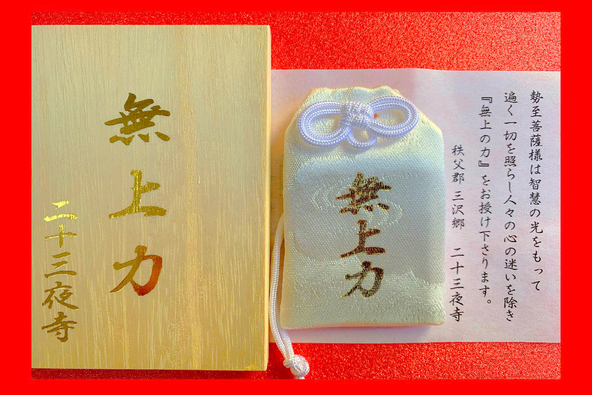 勢至菩薩様は智慧の光をもって
遍く一切を照らし人々の心の迷いを除き
『無上の力』をお授け下さります。
秩父郡三沢郷　二十三夜寺
無上力
無上力
二十三夜寺